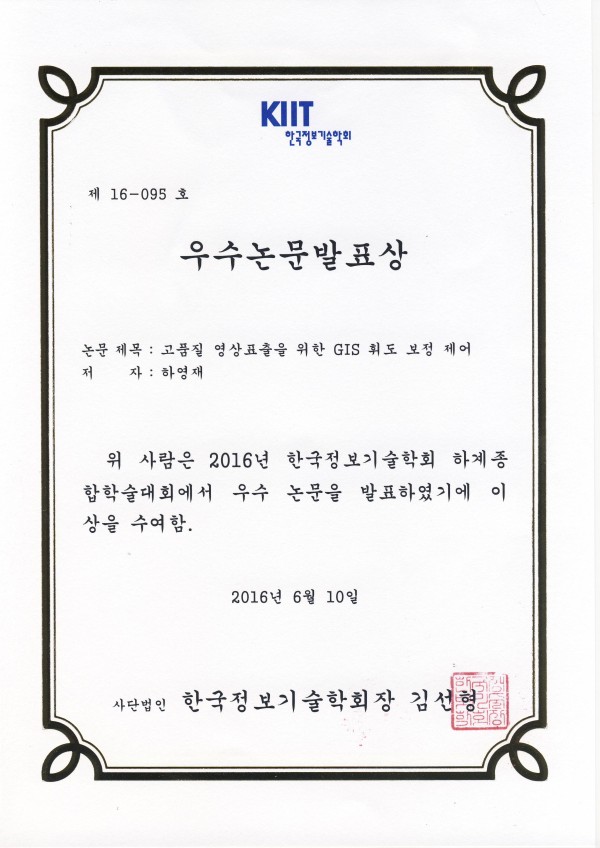 KIIT
한국정보기술학회
제 16-095 호
우수논문발표상
논문 제목 : 고품질 영상표출을 위한 GIS 휘도 보정 제어
저 자 : 하영재
위 사람은 2016년 한국정보기술학회 하계종
합학술대회에서 우수 논문을 발표하였기에 이
상을 수여함.
2016년 6월 10일
사단법인 한국정보기술학회장 김선형